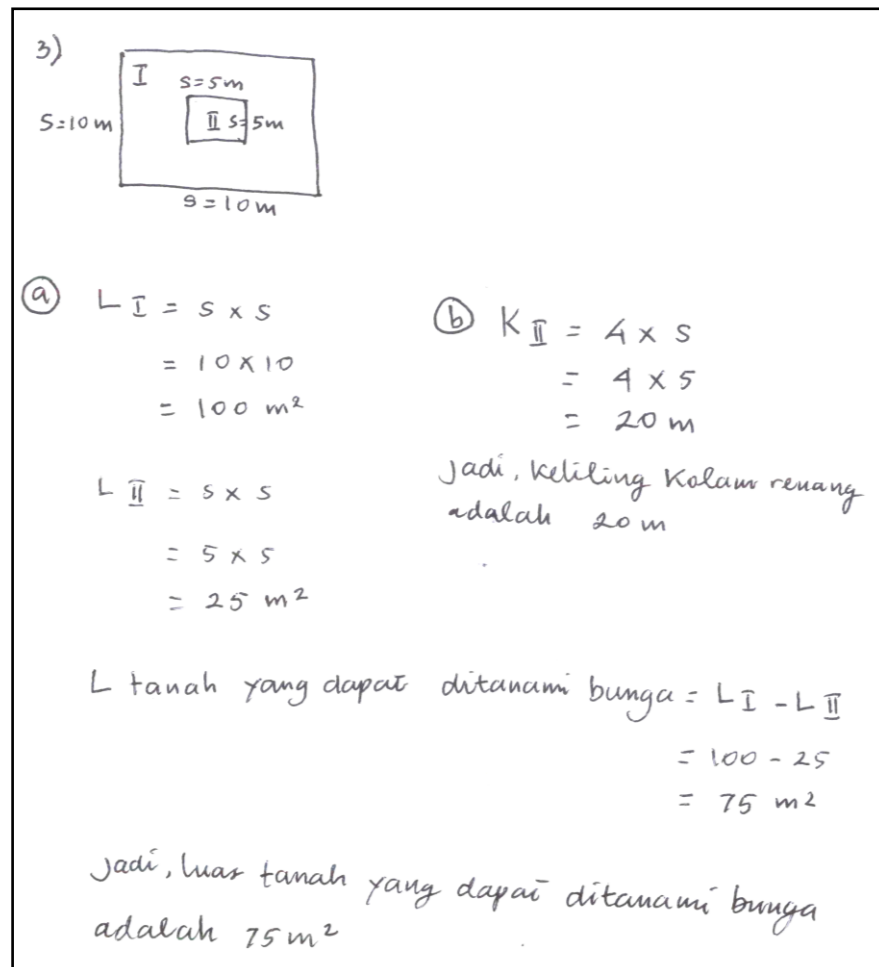 3)
I s=5m
S=10 m
II s=5m
s=10m
a L I = s x s
= 10 x 10
= 100 m²
L II = s x s
= 5 x 5
= 25 m²
b K II = 4 x s
= 4 x 5
= 20 m
Jadi, keliling kolam renang
adalah 20 m
L tanah yang dapat ditanami bunga = L I - L II
= 100 - 25
= 75 m²
Jadi, luas tanah yang dapat ditanami bunga
adalah 75 m²